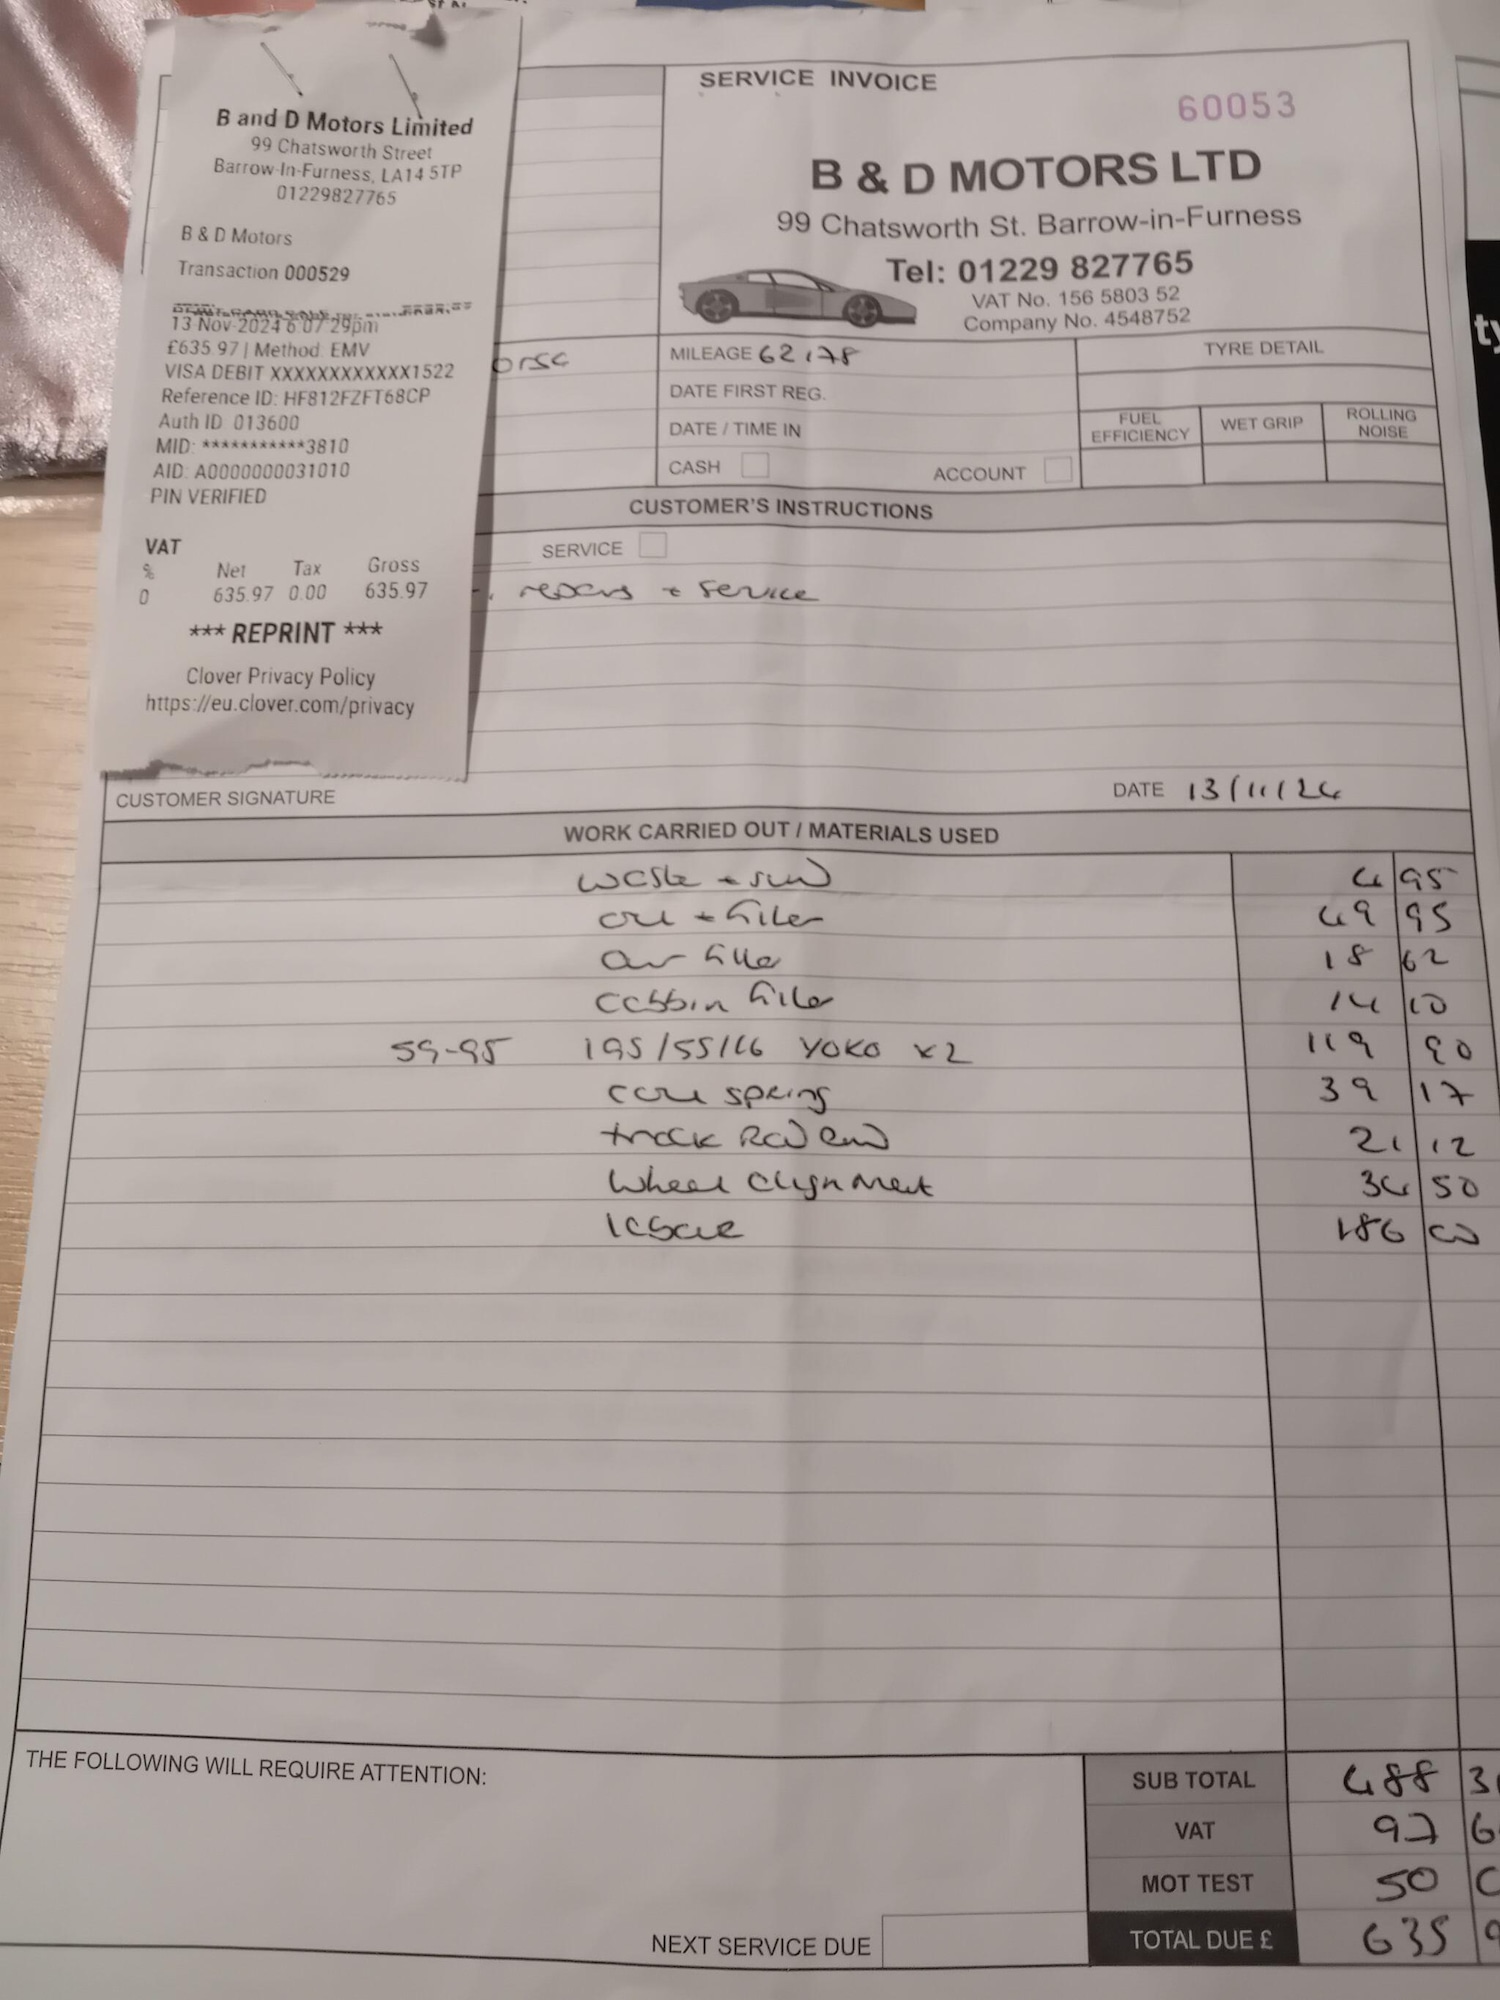 B and D Motors Limited
99 Chatsworth Street
Barrow-In-Furness, LA14 5TP
01229827765
B & D Motors
Transaction 000529
13 Nov 2024 6:07:29pm
£635.97 | Method: EMV
VISA DEBIT XXXXXXXXXXXX1522
Reference ID: HF812FZFT68CP
Auth ID: 013600
MID: ***********3810
AID: A0000000031010
PIN VERIFIED
VAT
% Net Tax Gross
0 635.97 0.00 635.97
*** REPRINT ***
Clover Privacy Policy
https://eu.clover.com/privacy
SERVICE INVOICE
60053
B & D MOTORS LTD
99 Chatsworth St. Barrow-in-Furness
Tel: 01229 827765
VAT No. 156 5803 52
Company No. 4548752
MILEAGE 62178
TYRE DETAIL
DATE FIRST REG.
DATE / TIME IN
FUEL EFFICIENCY WET GRIP ROLLING NOISE
CASH ACCOUNT
CUSTOMER'S INSTRUCTIONS
SERVICE
+ service
CUSTOMER SIGNATURE DATE 13/11/24
WORK CARRIED OUT / MATERIALS USED
waste + sund 4 95
oil + filter 49 95
air filter 18 62
cabbin filter 14 10
59-95 195/55/16 YOKO x2 119 90
coil spring 39 17
track Rod end 21 12
wheel alignment 34 50
labour 186 00
THE FOLLOWING WILL REQUIRE ATTENTION:
SUB TOTAL 488 31
VAT 97 6
MOT TEST 50
TOTAL DUE £ 635 9
NEXT SERVICE DUE